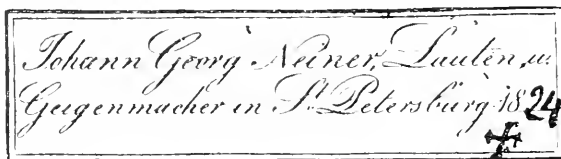 Johann Georg Neiner, Lauten, u.
Geigenmacher in St. Petersburg 1824